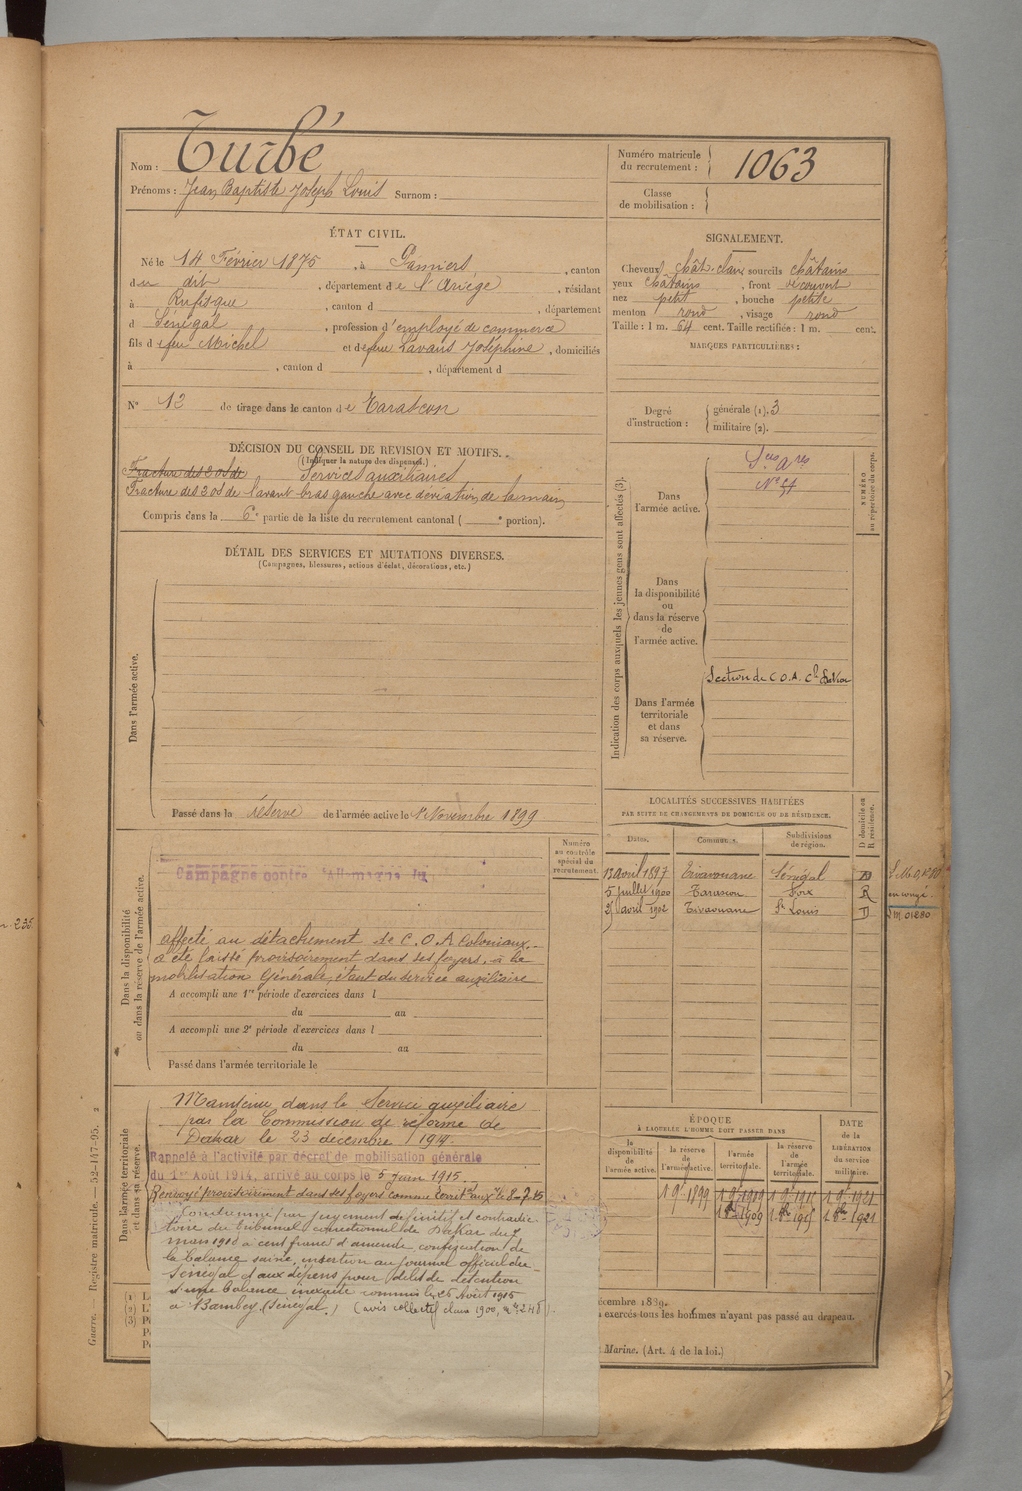 Nom : Turbé
Prénoms : Jean Baptiste Joseph Louis Surnom :
Numéro matricule du recrutement : 1063
Classe de mobilisation :
ÉTAT CIVIL.
Né le 14 Février 1875, à Pamiers, canton
du dit, département de l'Ariège, résidant
à Rufisque, canton d, département
d Sénégal, profession d'employé de commerce
fils de feu Michel et de feue Lavans Joséphine, domiciliés
à, canton d, département d
N° 12 de tirage dans le canton de Tarascon
SIGNALEMENT.
Cheveux chât. clair sourcils châtains
yeux châtains, front découvert
nez petit, bouche petite
menton rond, visage rond
Taille : 1 m. 64 cent. Taille rectifiée : 1 m. cent.
MARQUES PARTICULIÈRES :
Degré d'instruction : générale (1). 3
militaire (2).
DÉCISION DU CONSEIL DE REVISION ET MOTIFS.
(Indiquer la nature des dispenses.)
Fracture des 2 os de Services auxiliaires
Fracture des 2 os de l'avant bras gauche avec déviation de la main
Compris dans la 6e partie de la liste du recrutement cantonal ( e portion).
DÉTAIL DES SERVICES ET MUTATIONS DIVERSES.
(Campagnes, blessures, actions d'éclat, décorations, etc.)
Dans l'armée active.
Passé dans la réserve de l'armée active le 1er Novembre 1899
Indication des corps auxquels les jeunes gens sont affectés (3).
NUMÉRO au répertoire du corps.
Dans l'armée active.
Sces Ares
N° 51
Dans la disponibilité ou dans la réserve de l'armée active.
Dans l'armée territoriale et dans sa réserve.
Section de C.O.A. Cle Dakar
LOCALITÉS SUCCESSIVES HABITÉES
PAR SUITE DE CHANGEMENTS DE DOMICILE OU DE RÉSIDENCE.
Dates. Communes. Subdivisions de région. D domicile ou R résidence.
13 avril 1897 Tivavouane Sénégal D
5 juillet 1900 Tarascon Foix R
25 avril 1902 Tivaouane St Louis D
en congé.
Dans la disponibilité ou dans la réserve de l'armée active.
Numéro au contrôle spécial du recrutement.
Campagne contre l'Allemagne du
affecté au détachement de C.O.A Coloniaux.
a été laissé provisoirement dans ses foyers, à la
mobilisation Générale, étant du service auxiliaire
A accompli une 1re période d'exercices dans l
du au
A accompli une 2e période d'exercices dans l
du au
Passé dans l'armée territoriale le
Dans l'armée territoriale et dans sa réserve.
Maintenu dans le Service auxiliaire
par la Commission de réforme de
Dakar le 23 décembre 1914.
Rappelé à l'activité par décret de mobilisation générale
du 1er Août 1914, arrivé au corps le 5 Juin 1915.
Renvoyé provisoirement dans ses foyers comme
Condamné par jugement définitif et contradic-
toire du tribunal correctionnel de Dakar du
mars 1916 à cent francs d'amende, confiscation de
la balance saisie, insertion au journal officiel du
Sénégal et aux dépens pour délit de détention
d'une balance inexacte commis le 26 Août 1915
à Bambey (Sénégal.) (avis collectif classe 1900, n° 248).
ÉPOQUE
À LAQUELLE L'HOMME DOIT PASSER DANS
la disponibilité de l'armée active. la réserve de l'armée active. l'armée territoriale. la réserve de l'armée territoriale.
DATE de la LIBÉRATION du service militaire.
écembre 1889.
exercés tous les hommes n'ayant pas passé au drapeau.
Marine. (Art. 4 de la loi.)
Guerre. — Registre matricule. — 52-147-95. 2